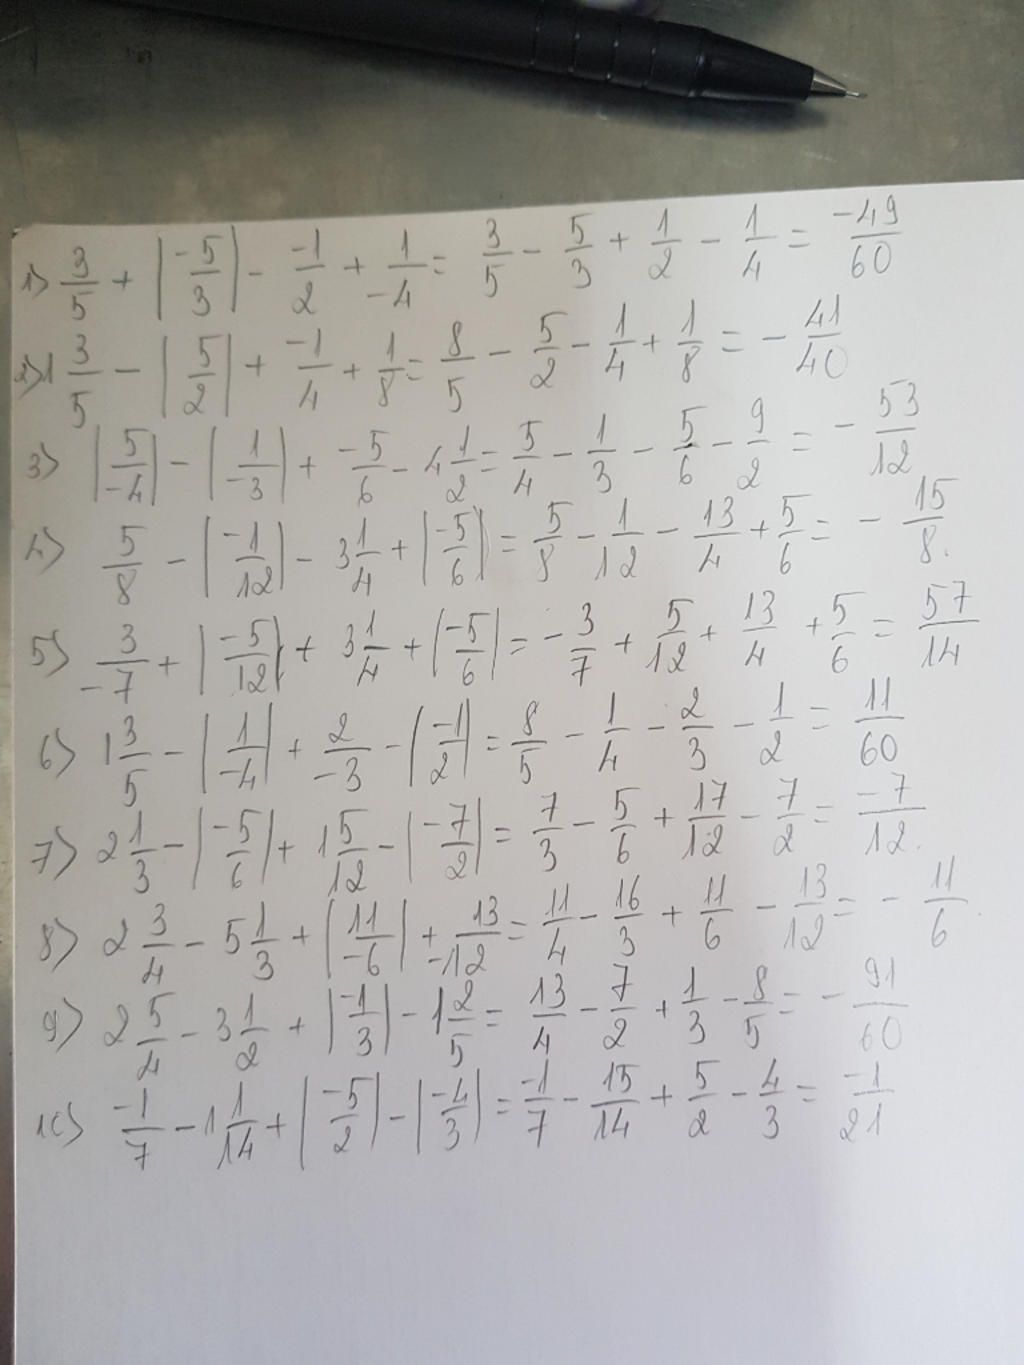 1) 3/5 + |-5/3| - -1/2 + 1/-4 = 3/5 - 5/3 + 1/2 - 1/4 = -49/60
2) 1 3/5 - |5/2| + -1/4 + 1/8 = 8/5 - 5/2 - 1/4 + 1/8 = - 41/40
3) |5/-4| - |1/-3| + -5/6 - 4 1/2 = 5/4 - 1/3 - 5/6 - 9/2 = - 53/12
4) 5/8 - |-1/12| - 3 1/4 + |-5/6| = 5/8 - 1/12 - 13/4 + 5/6 = - 15/8.
5) 3/-7 + |-5/12| + 3 1/4 + |-5/6| = - 3/7 + 5/12 + 13/4 + 5/6 = 57/14
6) 1 3/5 - |1/-4| + 2/-3 - |-1/2| = 8/5 - 1/4 - 2/3 - 1/2 = 11/60
7) 2 1/3 - |-5/6| + 1 5/12 - |-7/2| = 7/3 - 5/6 + 17/12 - 7/2 = -7/12.
8) 2 3/4 - 5 1/3 + |11/-6| + 13/-12 = 11/4 - 16/3 + 11/6 - 13/12 = - 11/6
9) 2 5/4 - 3 1/2 + |-1/3| - 1 2/5 = 13/4 - 7/2 + 1/3 - 8/5 = - 91/60
10) -1/7 - 1 1/14 + |-5/2| - |-4/3| = -1/7 - 15/14 + 5/2 - 4/3 = -1/21